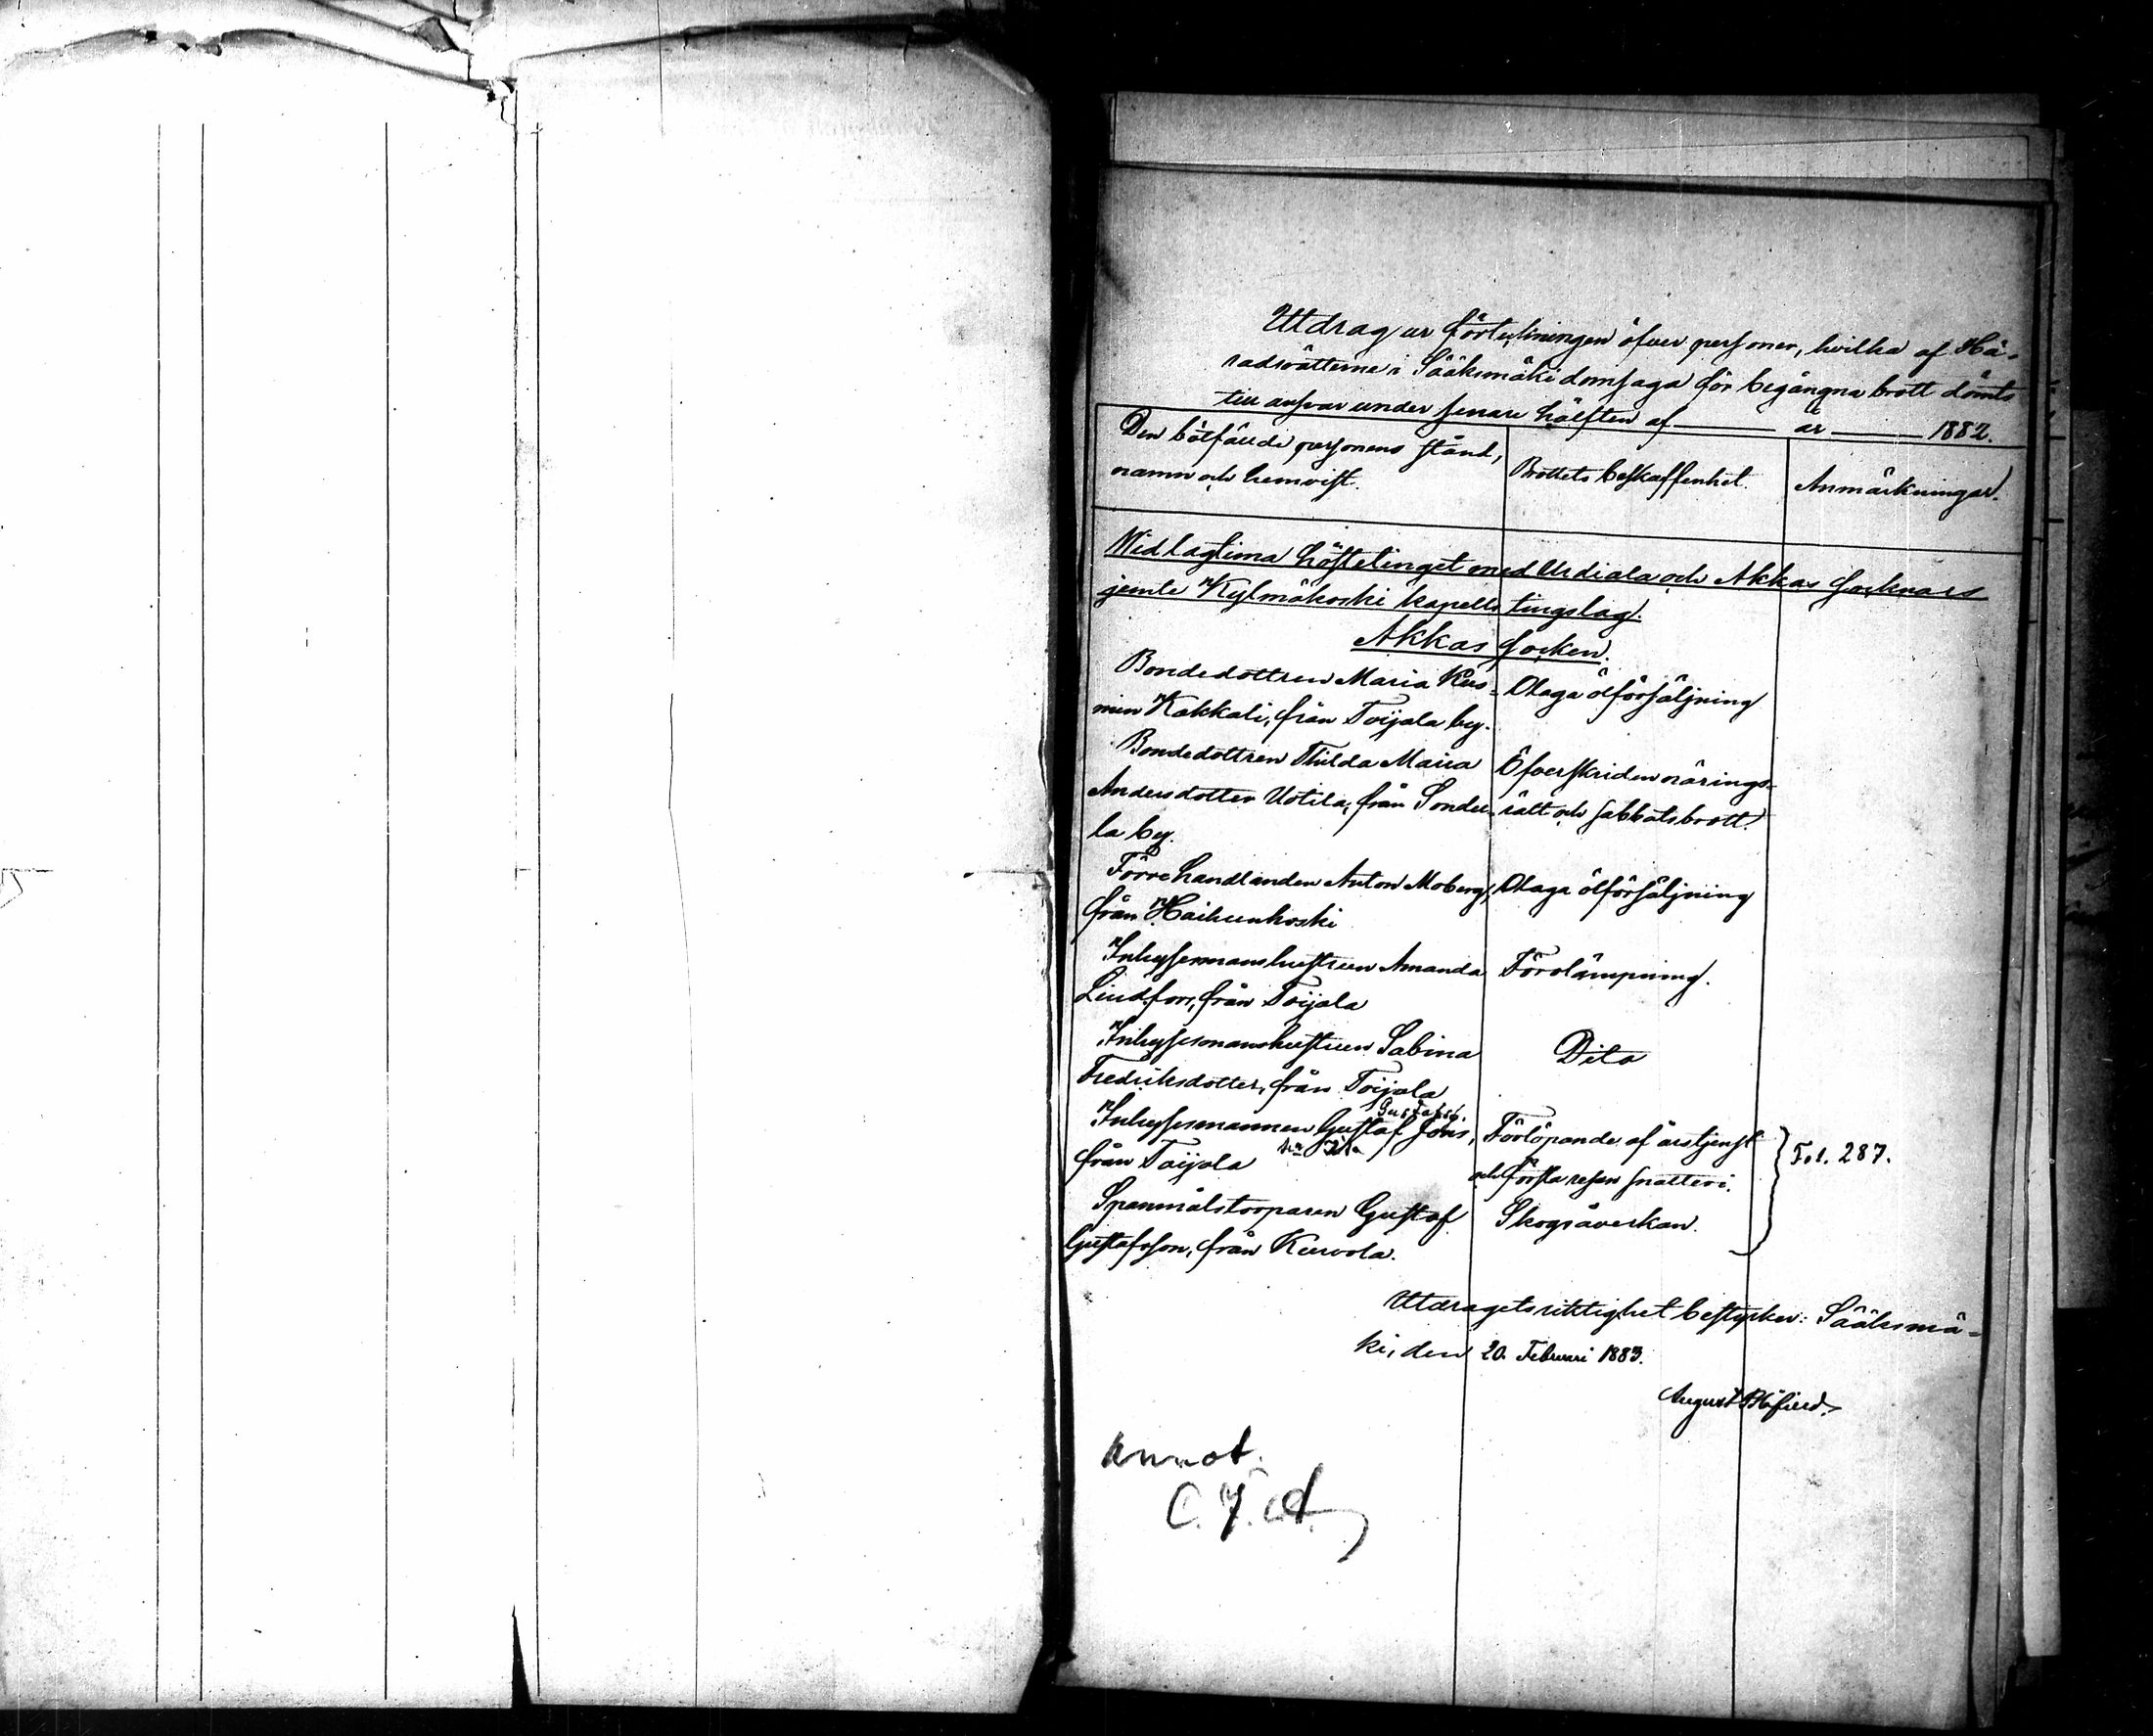 Utdrag ur förteckningen öfver personer, hvilka af Hä-
radsrätterne i Sääksmäki domsaga för begångna brott dömts
till ansvar under senare hälften af år 1882.
Den bötfällde personens stånd,
namn och hemvist.
Brottets beskaffenhet.
Anmärkningar.
Wid lagtima hösttinget med Urdiala och Akkas socknars
jemte Kylmäkoski kapells tingslag.
Akkas socken.
Bondedottren Maria
Kakkali, från Toijala by.
Olaga ölförsäljning
Bondedottren Thilda Maria
Andersdotter Uotila, från Sonda-
la by.
Öfverskriden närings-
rätt och sabbatsbrott.
Förre handlanden Anton Moberg,
från Haihunkoski
Olaga ölförsäljning
Inhysesmanshustrun Amanda
Lindfors, från Toijala
Förolämpning.
Inhysesmanshustrun Sabina
Fredriksdotter, från Toijala
Dito
Gustafss.
Inhysesmannen Gustaf
från Toijala
Förlöpande af årstjenst
och första resan snatteri.
Fol. 287.
Spanmålstorparen Gustaf
Gustafsson, från Kurvola.
Skogsåverkan.
Utdragets riktighet bestyrker: Sääksmä-
ki, den 20. Februari 1883.
August
Annot.